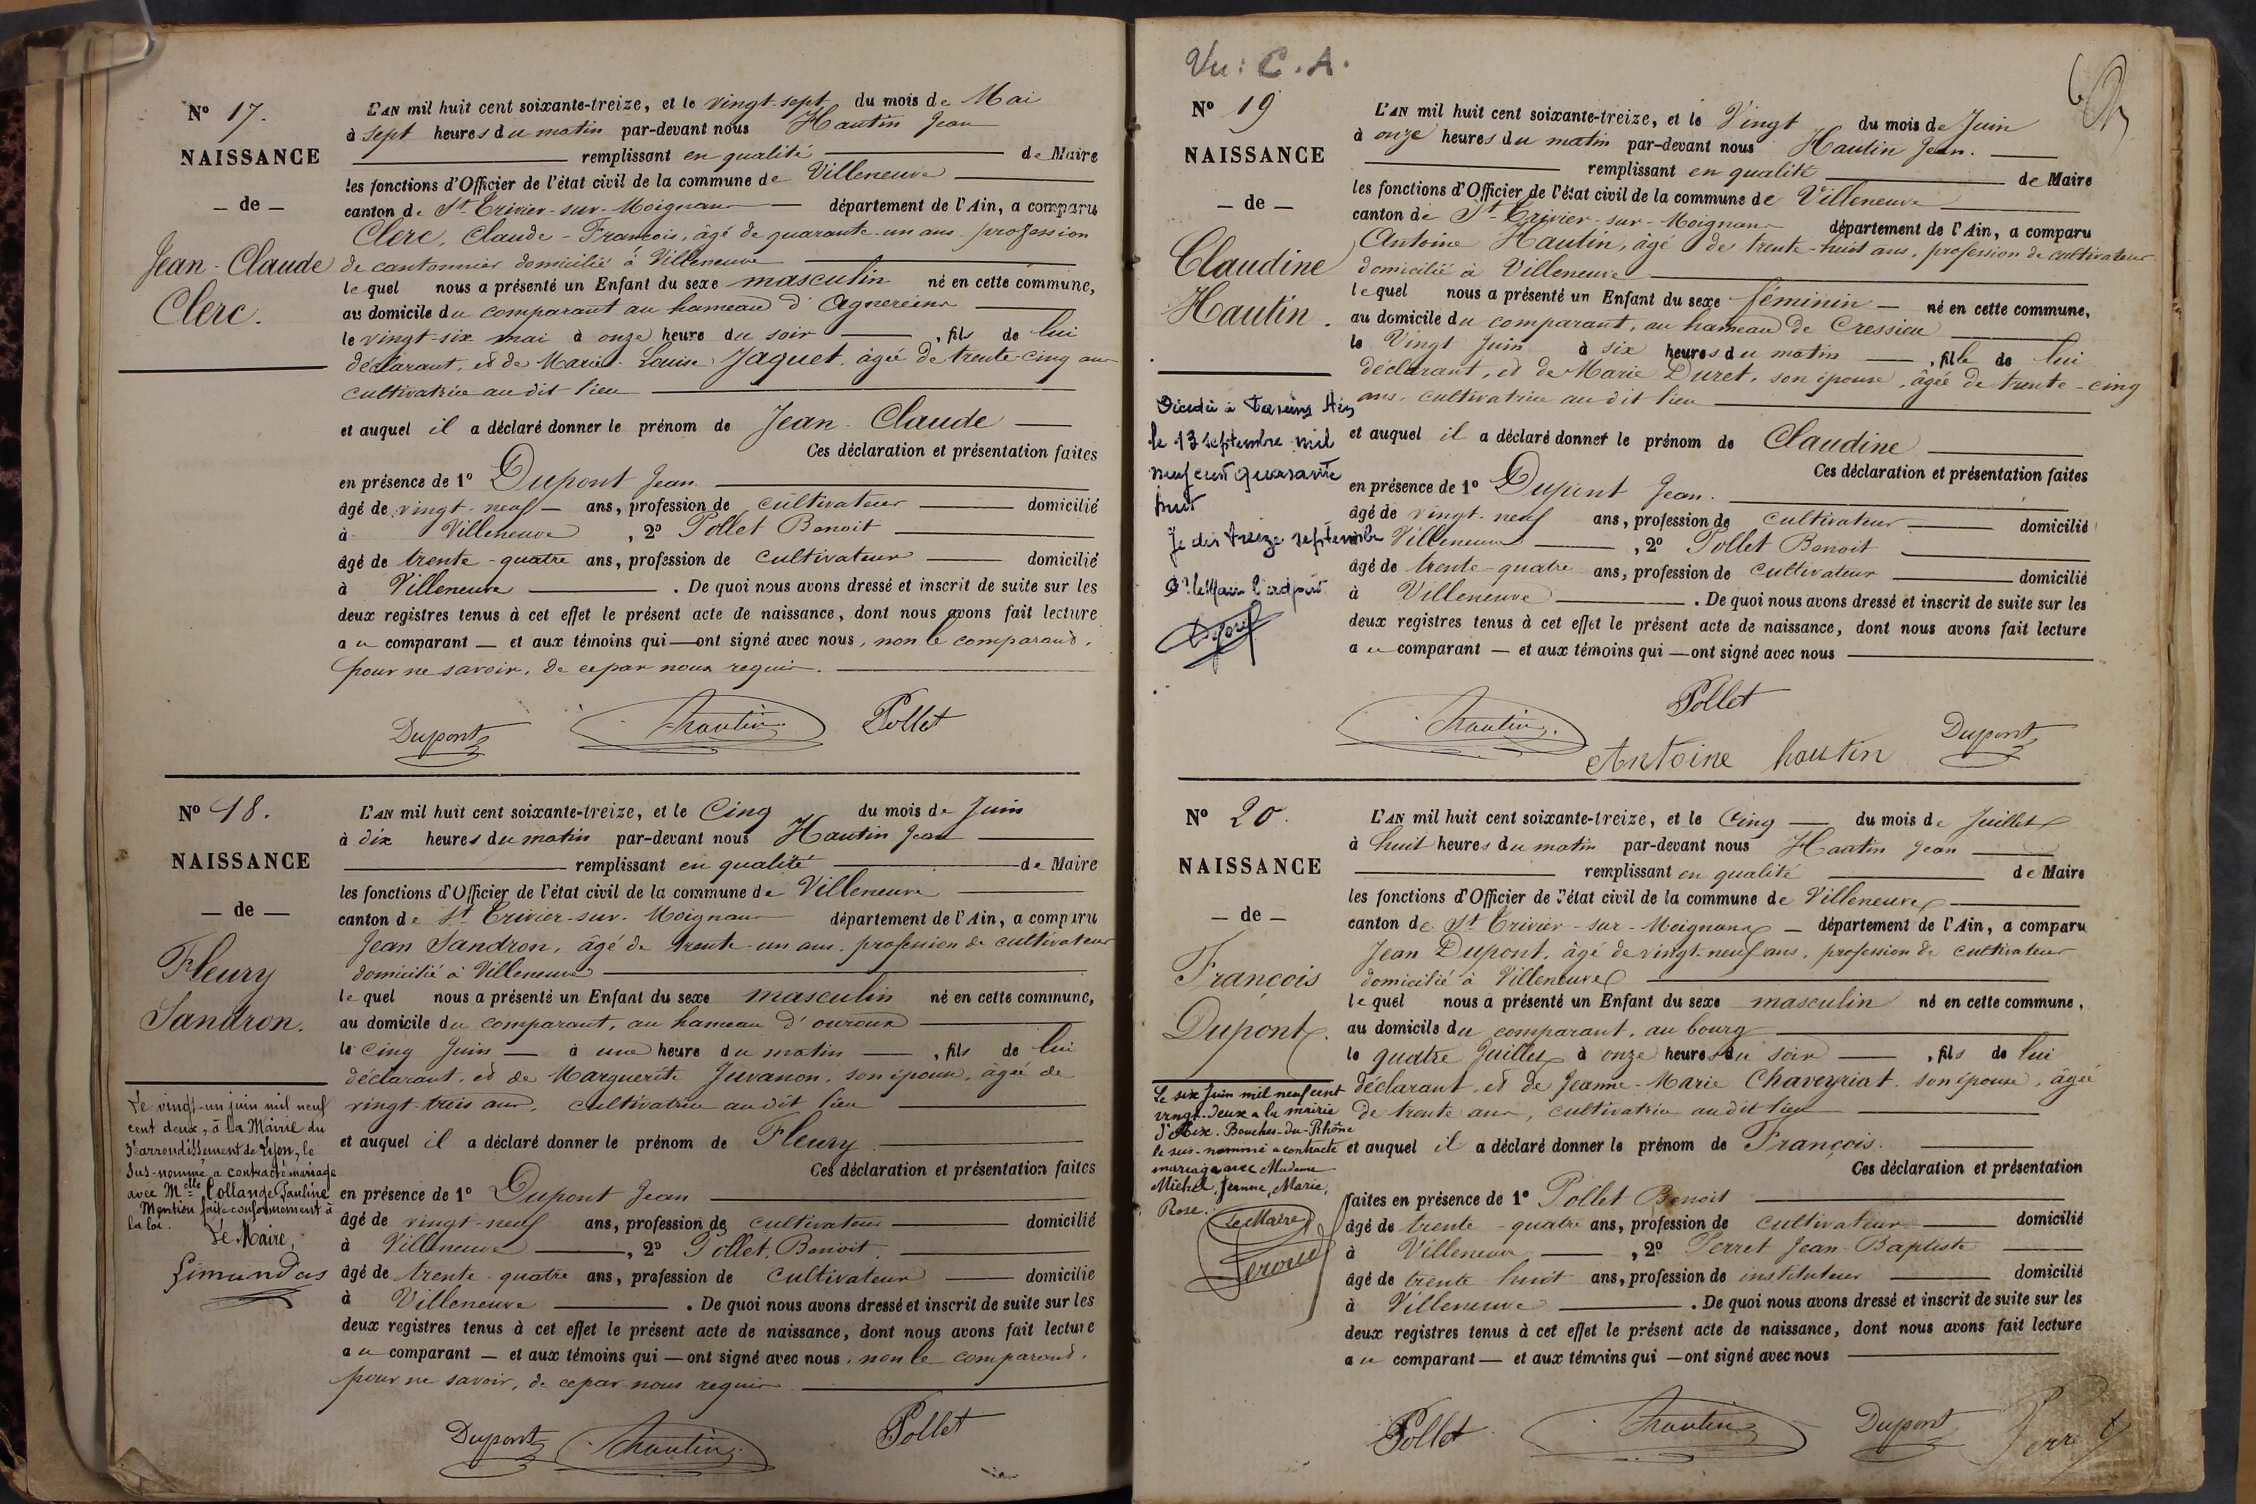 N° 17.
NAISSANCE
— de —
Jean-Claude
Clerc.
L'AN mil huit cent soixante-treize, et le vingt-sept du mois de Mai
à sept heures du matin par-devant nous Hautin Jean
remplissant en qualité de Maire
les fonctions d'Officier de l'état civil de la commune de Villeneuve
canton de St Trivier-sur-Moignans département de l'Ain, a comparu
Clerc, Claude-François, âgé de quarante-un ans, profession
de cantonnier domicilié à Villeneuve
lequel nous a présenté un Enfant du sexe masculin né en cette commune,
au domicile du comparant au hameau d'Agnereins
le vingt-six mai à onze heure du soir, fils de lui
déclarant, et de Marie-Louise Jaquet, âgée de trente-cinq ans
cultivatrice au dit lieu
et auquel il a déclaré donner le prénom de Jean-Claude
Ces déclaration et présentation faites
en présence de 1° Dupont Jean
âgé de vingt-neuf ans, profession de cultivateur domicilié
à Villeneuve, 2° Pollet Benoit
âgé de trente-quatre ans, profession de cultivateur domicilié
à Villeneuve. De quoi nous avons dressé et inscrit de suite sur les
deux registres tenus à cet effet le présent acte de naissance, dont nous avons fait lecture
au comparant — et aux témoins qui — ont signé avec nous, non le comparant,
pour ne savoir, de ce par nous requis.
Dupont Hautin Pollet
N° 18.
NAISSANCE
— de —
Fleury
Sandron.
Le vingt-un juin mil neuf
cent deux, à la Mairie du
3e arrondissement de Lyon, le
sus-nommé a contracté mariage
avec Melle Collange Pauline
Mention faite conformément à
la loi.
Le Maire,
Limandas
L'AN mil huit cent soixante-treize, et le Cinq du mois de Juin
à dix heures du matin par-devant nous Hautin Jean
remplissant en qualité de Maire
les fonctions d'Officier de l'état civil de la commune de Villeneuve
canton de St Trivier-sur-Moignans département de l'Ain, a comparu
Jean Sandron, âgé de trente-un ans, profession de cultivateur
domicilié à Villeneuve
lequel nous a présenté un Enfant du sexe masculin né en cette commune,
au domicile du comparant, au hameau d'ouroux
le cinq Juin — à une heure du matin —, fils de lui
déclarant, et de Marguerite Juvanon, son épouse, âgée de
vingt-trois ans, cultivatrice au dit lieu
et auquel il a déclaré donner le prénom de Fleury
Ces déclaration et présentation faites
en présence de 1° Dupont Jean
âgé de vingt-neuf ans, profession de cultivateur domicilié
à Villeneuve, 2° Pollet, Benoit
âgé de trente-quatre ans, profession de cultivateur domicilié
à Villeneuve. De quoi nous avons dressé et inscrit de suite sur les
deux registres tenus à cet effet le présent acte de naissance, dont nous avons fait lecture
au comparant — et aux témoins qui — ont signé avec nous, non le comparant,
pour ne savoir, de ce par nous requis
Dupont Hautin Pollet
Vu: C. A.
N° 19
NAISSANCE
— de —
Claudine
Hautin.
Décédée à
le 13 septembre mil
neuf cent quarante
huit
le dix treize septembre
Pr le Maire l'adjoint
L'AN mil huit cent soixante-treize, et le Vingt du mois de Juin
à onze heures du matin par-devant nous Hautin Jean.
remplissant en qualité de Maire
les fonctions d'Officier de l'état civil de la commune de Villeneuve
canton de St Trivier-sur-Moignans département de l'Ain, a comparu
Antoine Hautin, âgé de trente-huit ans, profession de cultivateur
domicilié à Villeneuve
lequel nous a présenté un Enfant du sexe féminin — né en cette commune,
au domicile du comparant, au hameau de Cressieu
le Vingt Juin à six heures du matin —, fille de lui
déclarant, et de Marie Duret, son épouse, âgée de trente-cinq
ans, cultivatrice au dit lieu
et auquel il a déclaré donner le prénom de Claudine
Ces déclaration et présentation faites
en présence de 1° Dupont Jean.
âgé de vingt-neuf ans, profession de cultivateur domicilié
à Villeneuve, 2° Pollet Benoit
âgé de trente-quatre ans, profession de cultivateur domicilié
à Villeneuve. De quoi nous avons dressé et inscrit de suite sur les
deux registres tenus à cet effet le présent acte de naissance, dont nous avons fait lecture
au comparant — et aux témoins qui — ont signé avec nous
Hautin Pollet
Antoine hautin Dupont
N° 20.
NAISSANCE
— de —
François
Dupont.
Le six Juin mil neuf cent
vingt-deux à la mairie
d'Aix. Bouches-du-Rhône
le sus-nommé a contracté
mariage avec Madame
Michel, Jeanne, Marie,
Rose.
Le Maire
L'AN mil huit cent soixante-treize, et le Cinq — du mois de Juillet
à huit heures du matin par-devant nous Hautin Jean
remplissant en qualité de Maire
les fonctions d'Officier de l'état civil de la commune de Villeneuve
canton de St Trivier-sur-Moignans — département de l'Ain, a comparu
Jean Dupont, âgé de vingt-neuf ans, profession de cultivateur
domicilié à Villeneuve
lequel nous a présenté un Enfant du sexe masculin né en cette commune,
au domicile du comparant, au bourg
le quatre Juillet à onze heures du soir —, fils de lui
déclarant, et de Jeanne-Marie Chaveyriat, son épouse, âgée
de trente ans, cultivatrice au dit lieu
et auquel il a déclaré donner le prénom de François.
Ces déclaration et présentation
faites en présence de 1° Pollet Benoit
âgé de trente-quatre ans, profession de cultivateur domicilié
à Villeneuve —, 2° Perret Jean-Baptiste
âgé de trente huit ans, profession de instituteur domicilié
à Villeneuve. De quoi nous avons dressé et inscrit de suite sur les
deux registres tenus à cet effet le présent acte de naissance, dont nous avons fait lecture
au comparant — et aux témoins qui — ont signé avec nous
Pollet Hautin Dupont Perret